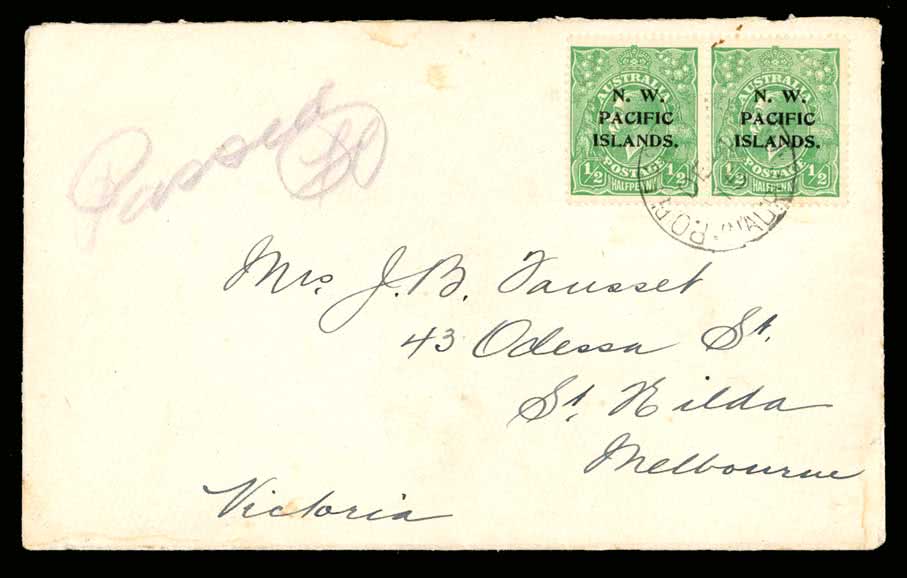 AUSTRALIA AUSTRALIA
N. W. N. W.
PACIFIC PACIFIC
ISLANDS. ISLANDS.
POSTAGE POSTAGE
1/2 1/2 1/2 1/2
HALFPENNY HALFPENNY
Passed
Mrs. J. B. Fausset
43 Odessa St.
St. Kilda
Melbourne
Victoria